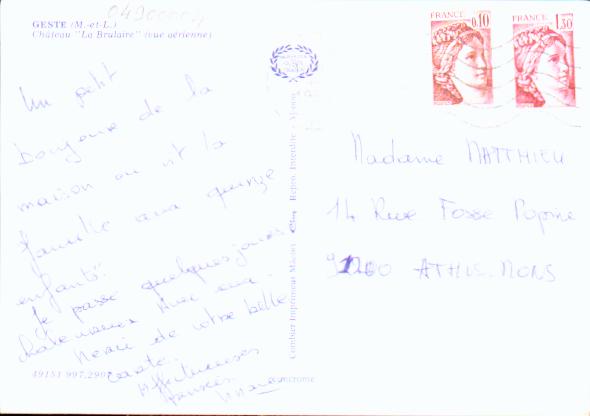 04900004
GESTE (M.-et-L.)
Château "La Brulaire" (vue aérienne)
FRANCE
0,10
FRANCE
1,30
Un petit
bonjour de la
maison où vit la
famille aux quinze
enfants.
Je passe quelques jours
avec eux.
Merci de votre belle
carte.
Affectueuses
pensées
Combier Imprimeur Mâcon
Reprod. Interdite
Madame MATTHIEU
14 Rue Fosse Popine
91200 ATHIS-MONS